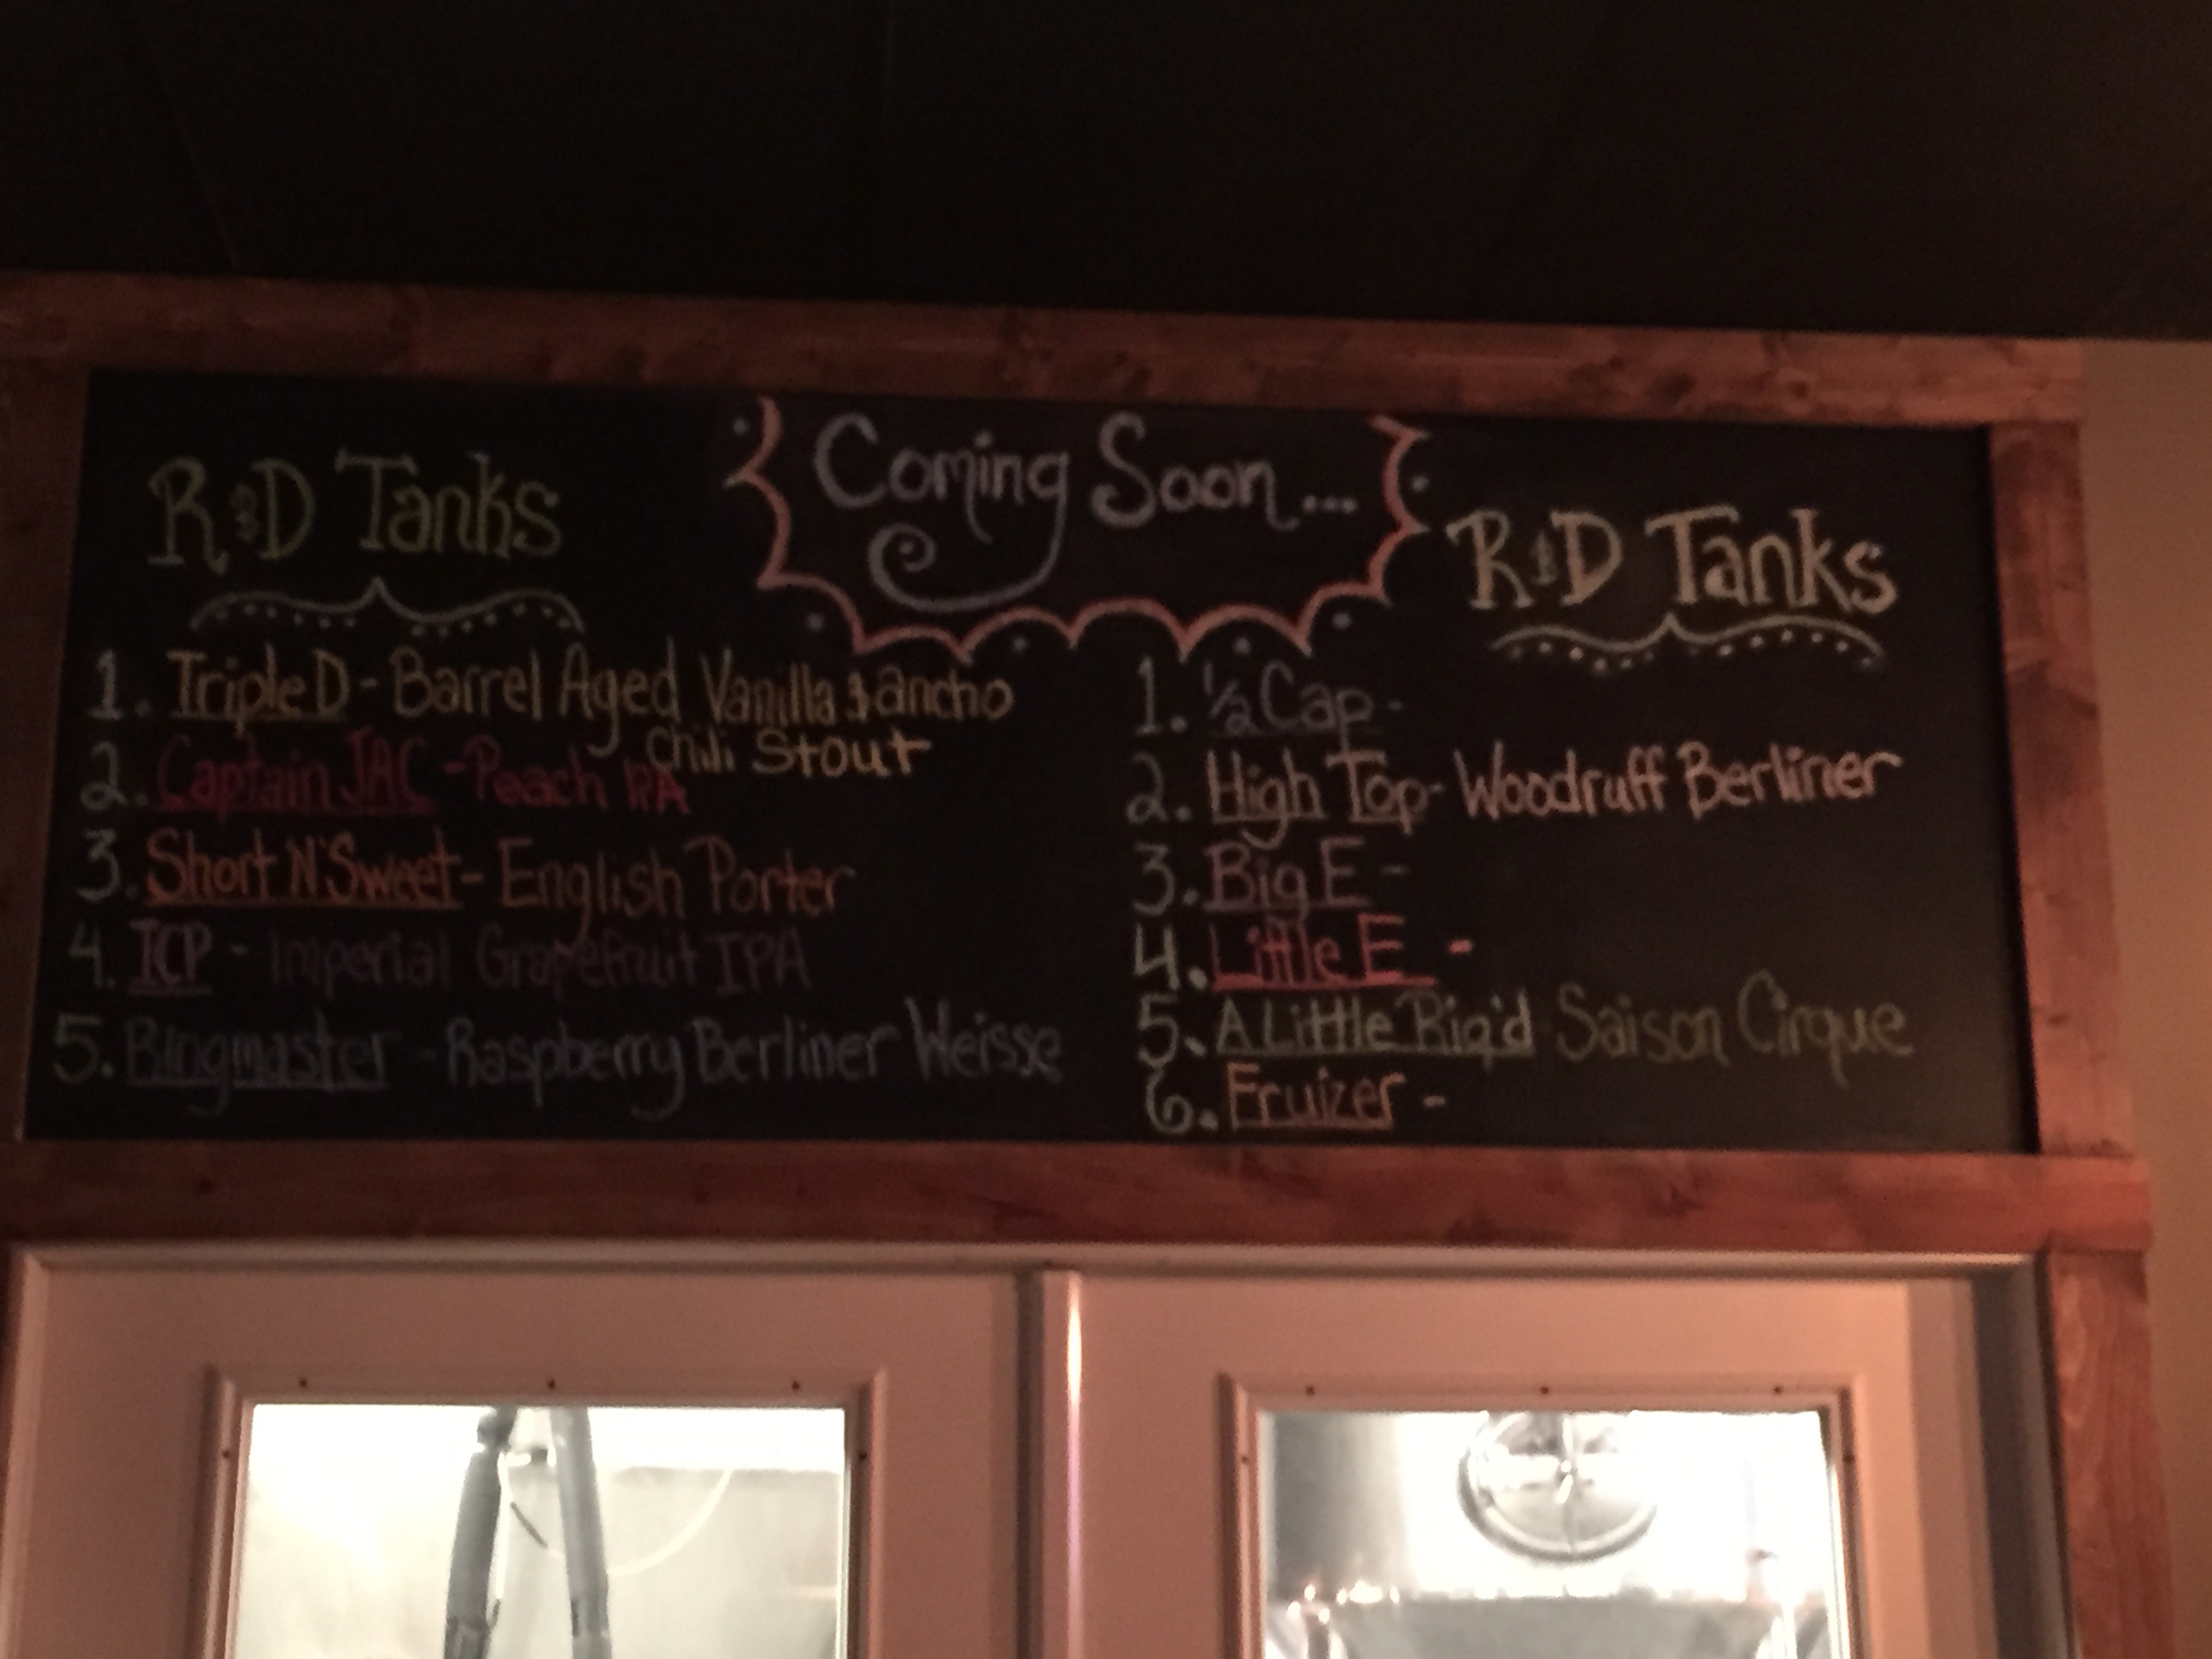 Coming Soon...
R&D Tanks
1. Triple D - Barrel Aged Vanilla & ancho
Chili Stout
2. Captain JAC - Peach IPA
3. Short N' Sweet - English Porter
4. ICP - Imperial Grapefruit IPA
5. Bingmaster - Raspberry Berliner Weisse
R&D Tanks
1. ½ Cap -
2. High Top - Woodruff Berliner
3. Big E -
4. Little E -
5. A Little Big'd Saison Cirque
6. Fruizer -